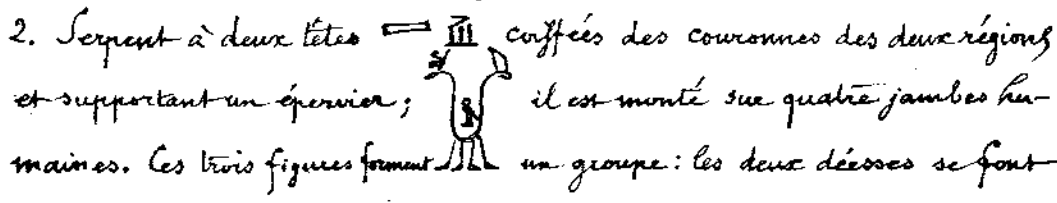 2. Serpent à deux têtes coiffées des couronnes des deux régions
et supportant un épervier; il est monté sur quatre jambes hu-
maines. Ces trois figures forment un groupe: les deux déesses se font